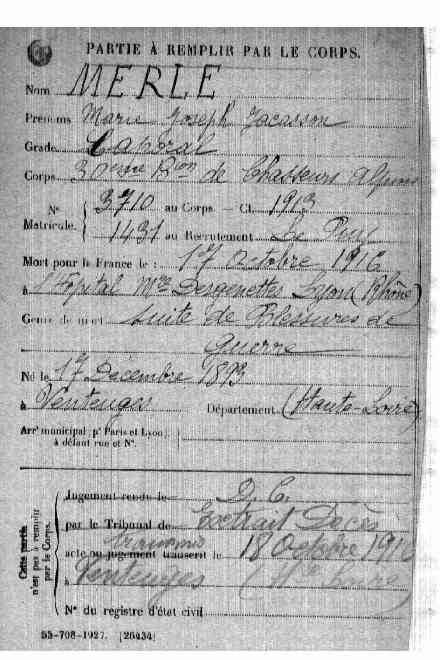 PARTIE À REMPLIR PAR LE CORPS.
Nom MERLE
Prénoms Marie Joseph Jacasson
Grade Caporal
Corps 30ème Bon de Chasseurs Alpins
N° 3710 au Corps. — Cl. 1913
Matricule. 1431 au Recrutement Le Puy
Mort pour la France le : 17 Octobre 1916
à l'Hôpital Mre Desgenettes Lyon (Rhône)
Genre de mort suite de Blessures de
Guerre
Né le 17 Décembre 1893
à Venteuges Département (Haute-Loire)
Arrt municipal (pr Paris et Lyon),
à défaut rue et N°.
Cette partie n'est pas à remplir par le Corps.
Jugement rendu le D. C.
par le Tribunal de Extrait Décès
acte ou jugement transcrit le 18 Octobre 1916
à Venteuges (Hte Loire)
N° du registre d'état civil
53-708-1927. [26434]